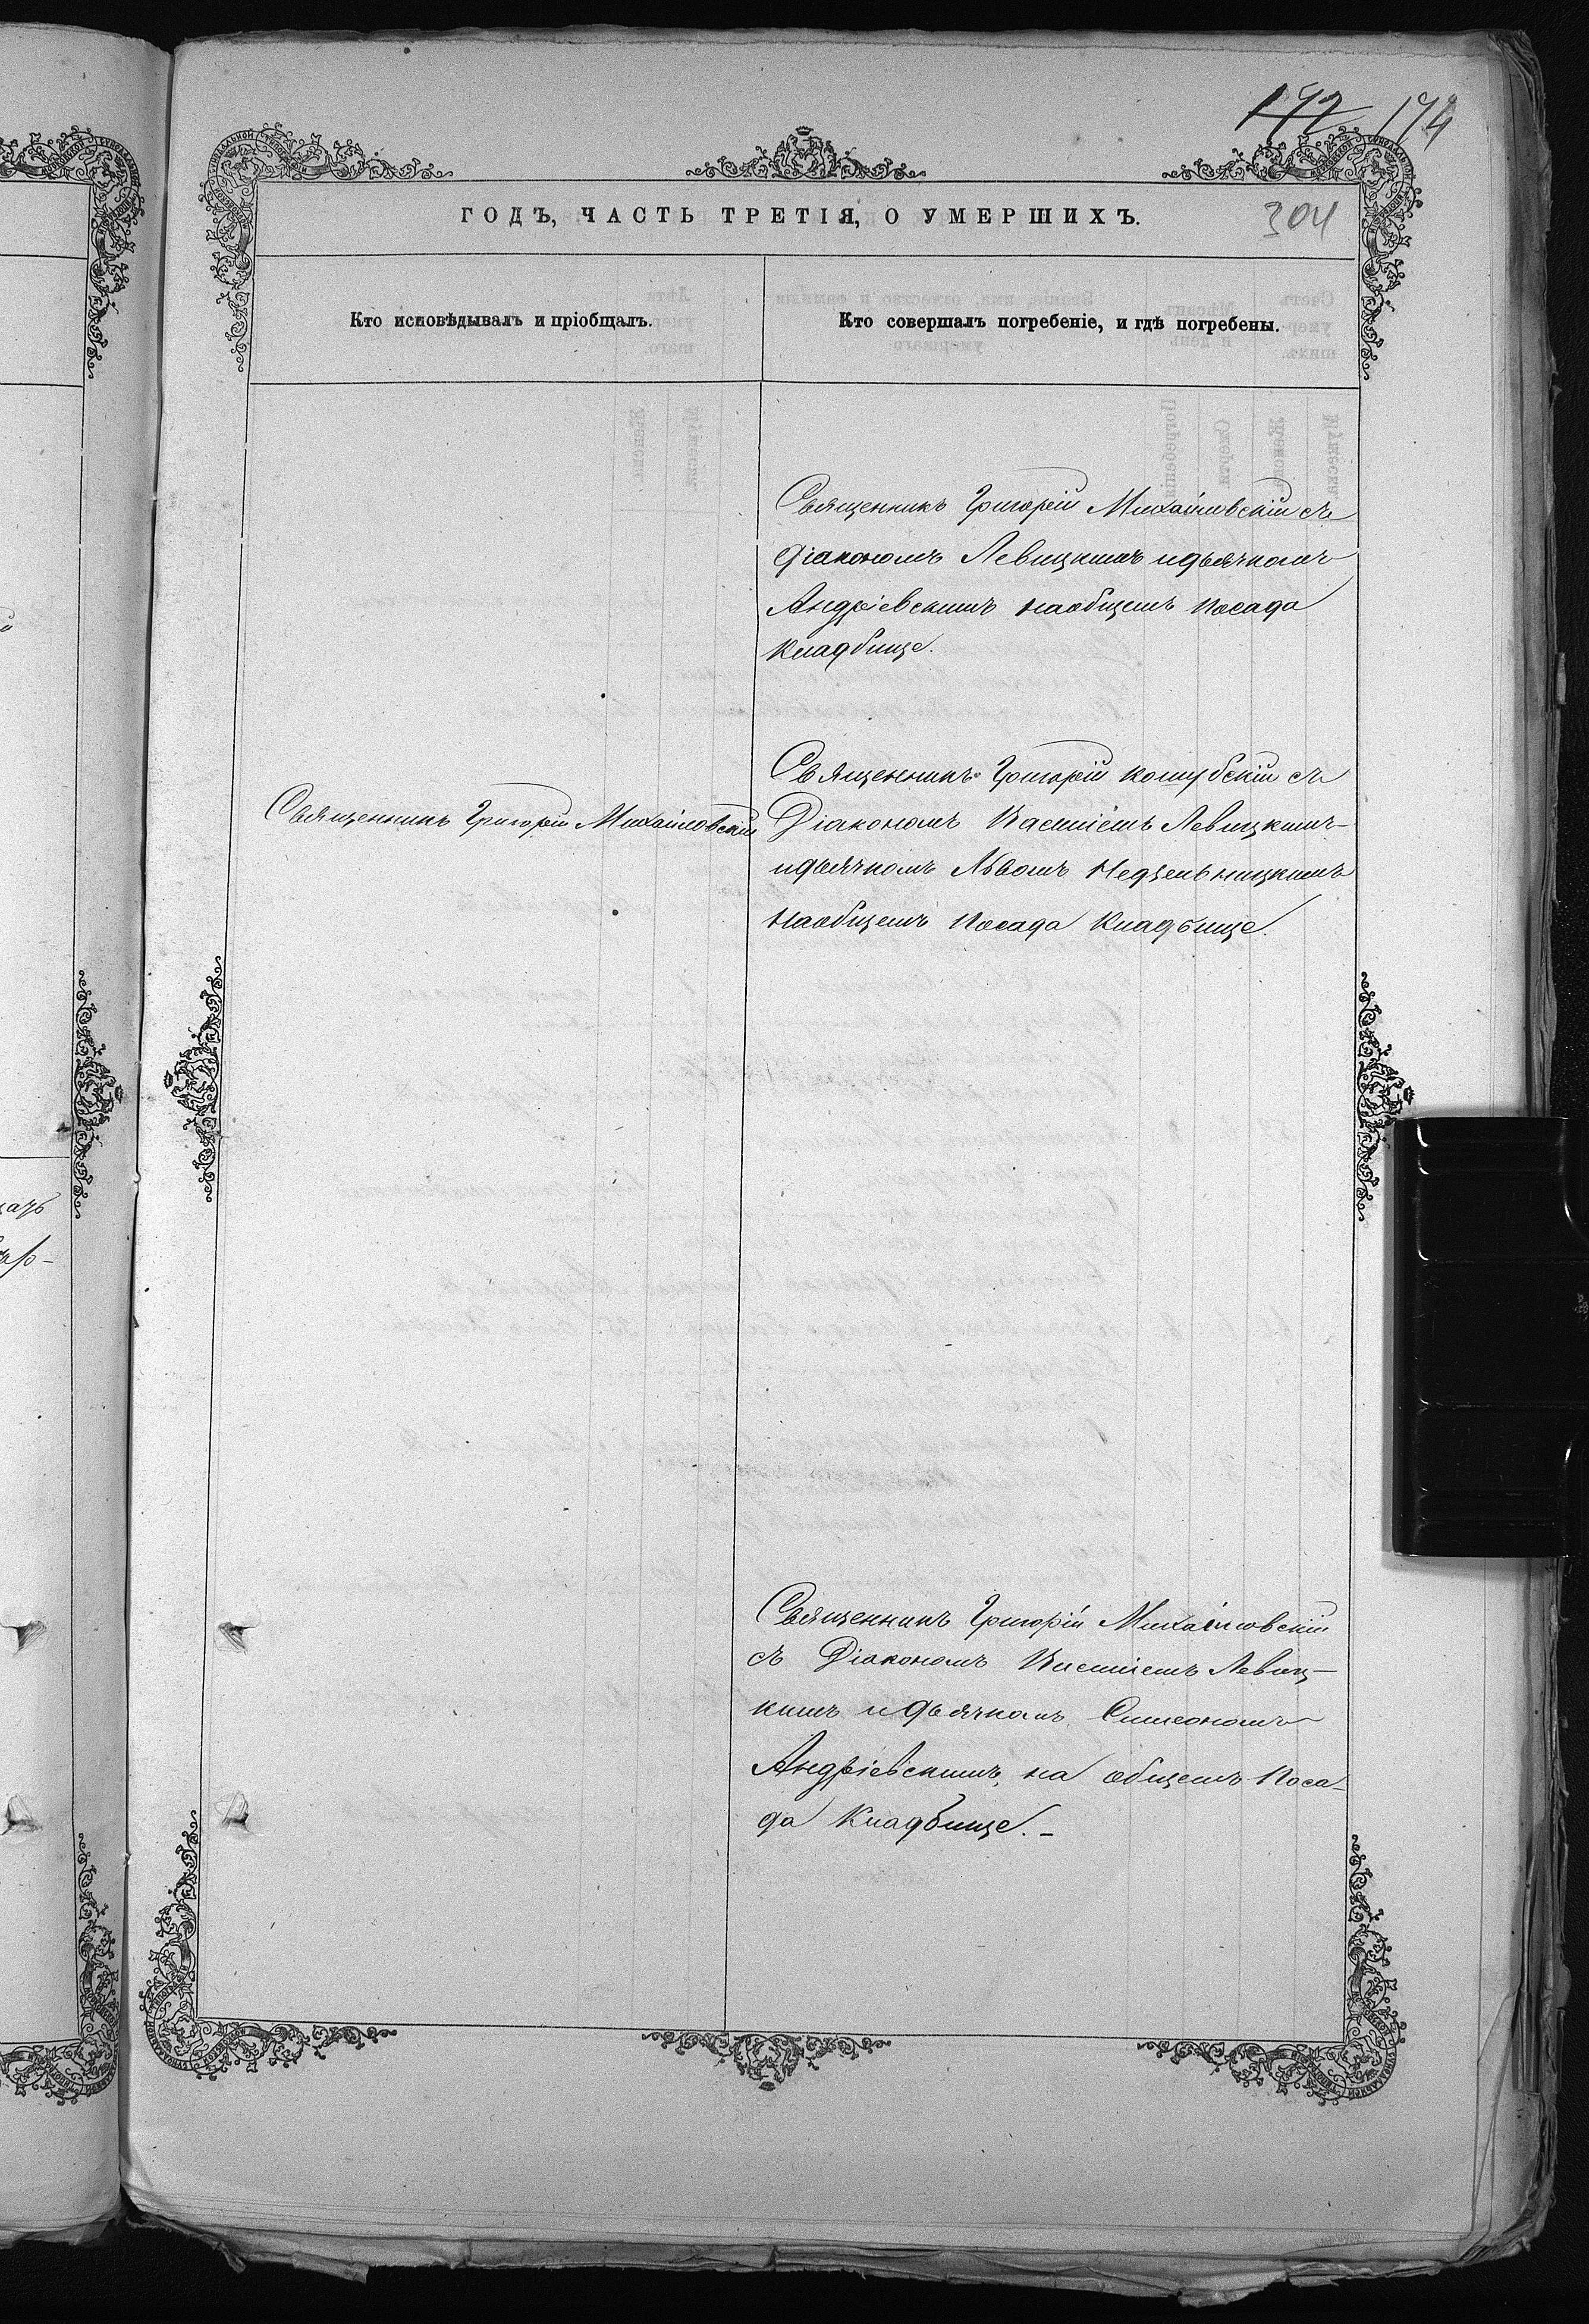 172 174
ГОДЪ, ЧАСТЬ ТРЕТІЯ, О УМЕРШИХЪ.
304
Кто исповѣдывалъ и пріобщалъ.
Кто совершалъ погребеніе, и гдѣ погребены.
Священникъ Григорій Михайловскій съ
діакономъ Левицкимъ идьячкомъ
Андріевскимъ наобщемъ посада
кладбище.
Священникъ Григорій Михайловскій
Священникъ Григорій Кошубскій съ
Діакономъ Василіемъ Левицкимъ
идьячкомъ Львомъ Недзельницкимъ
наобщемъ посада кладбище.
Священникъ Григорій Михайловскій
съ Діакономъ Василіемъ Левиц-
кимъ и дьячкомъ Симеономъ
Андріевскимъ, на общемъ поса-
да кладбище. -